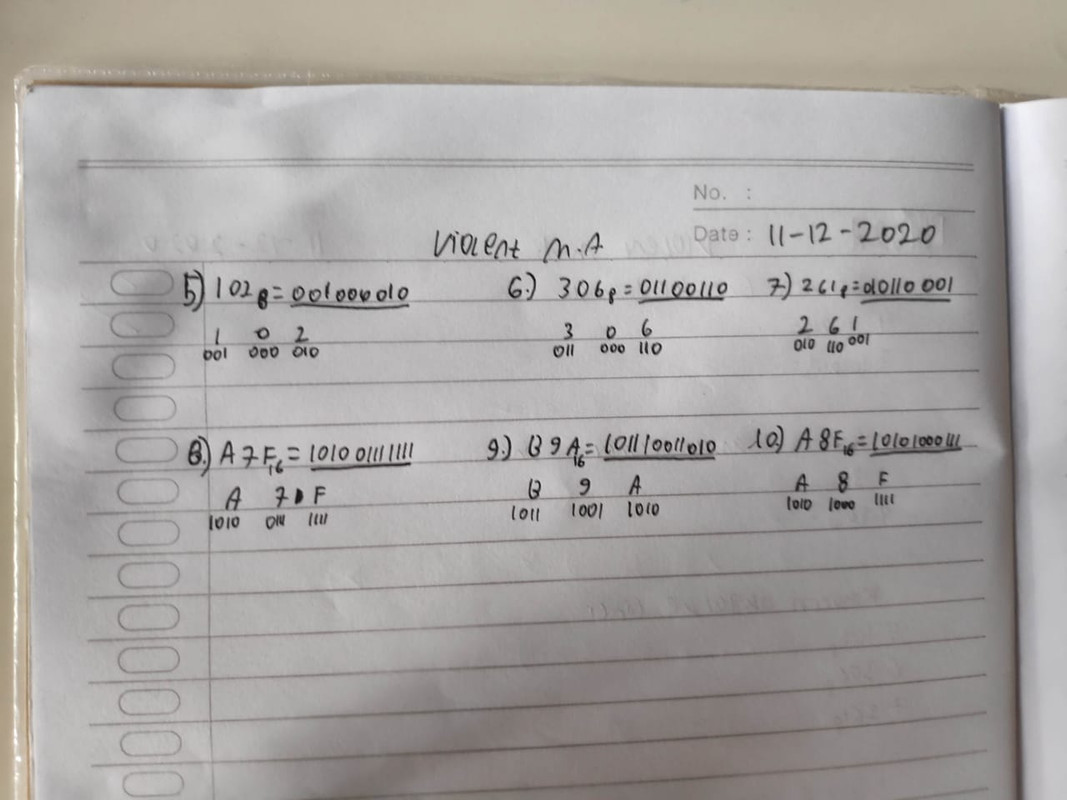 No. :
Violent M.A Date : 11-12-2020
5) 102₈ = 001000010 6.) 306₈ = 01100110 7.) 261₈ = 010110001
1 0 2 3 0 6 2 6 1
001 000 010 011 000 110 010 110 001
8.) A7F₁₆ = 101001111111 9.) B9A₁₆ = 101110011010 10.) A8F₁₆ = 10101000111
A 7 F B 9 A A 8 F
1010 0111 1111 1011 1001 1010 1010 1000 1111